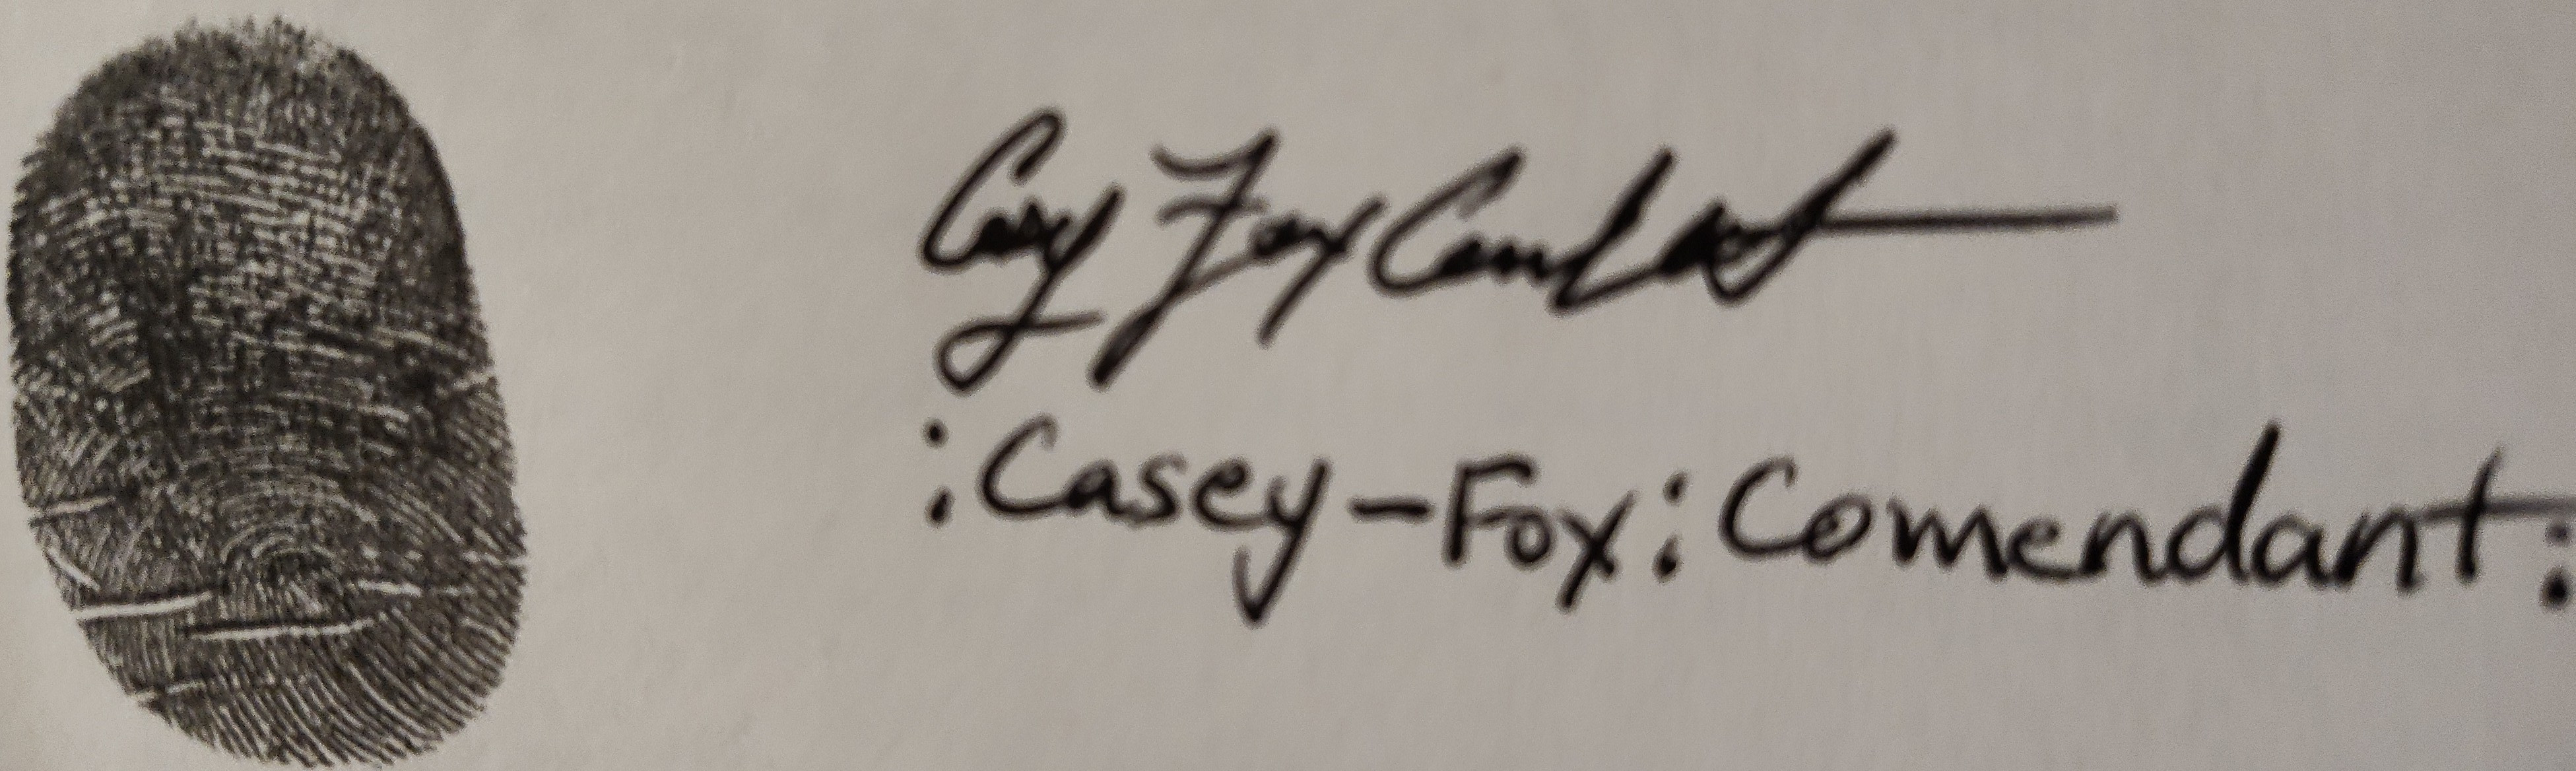 Casey Fox Comendant
:Casey-Fox:Comendant: